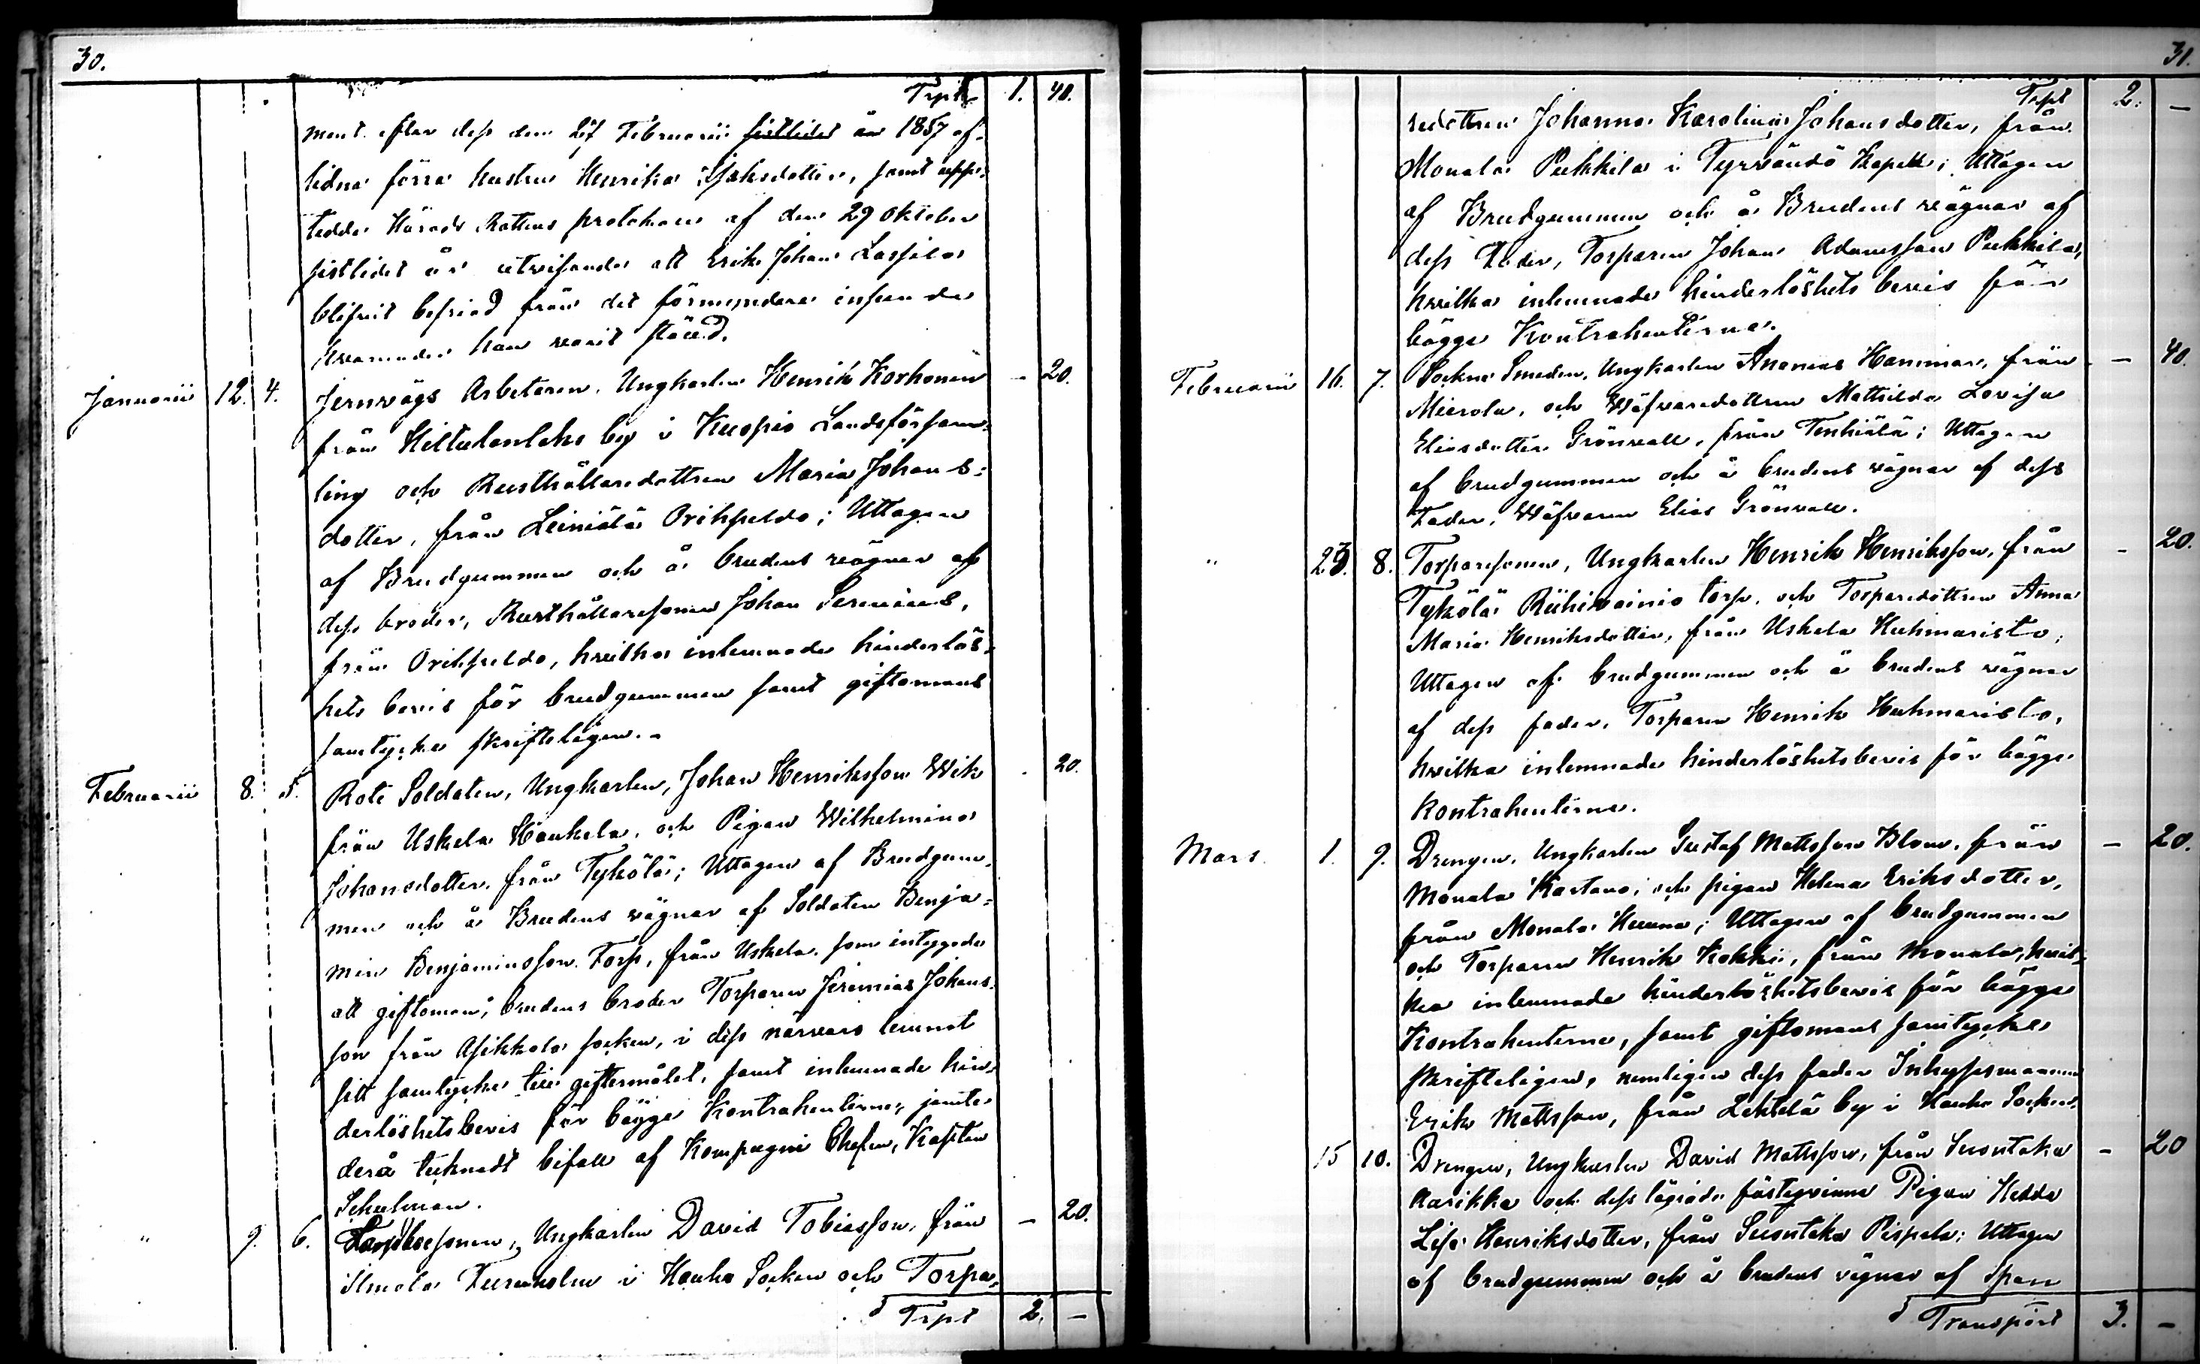 30.
Trpt 1. 40.
ment efter dess den 27 Februarii sistledet år 1857 af-
lidna förra hustru Henrika Isaksdotter, samt uppe-
tedde Härads Rättens protokoll af den 29 Oktober
sistledet år utvisande att Erik Johan Lassila
blifvit befriad från det förmyndare inseende
hvarunder han varit ställd.
Januarii 12. 4. Jernvägs Arbetaren, Ungkarlen Henrik Korhonen - 20.
från Hiltulanlaks by i Kuopio Landsförsam-
ling och Rusthållaredottren Maria Johans-
dotter, från Leiniälä Orihpeldo; Uttagen
af Brudgummen och å brudens vägnar af
dess broder, Rusthållaresonen Johan Serenius,
från Orihpeldo, hvilka inlemnade hinderlös-
hets bevis för brudgummen samt giftomans
samtycke skrifteligen.
Februarii 8. 5. Rote Soldaten, Ungkarlen, Johan Henriksson Wik - 20.
från Uskela Haukela, och Pigan Wilhelmina
Johansdotter, från Tykölä; Uttagen af Brudgum-
men och å Brudens vägnar af Soldaten Benja-
min Benjaminsson Torp, från Uskela, som intygade
att giftoman, brudens broder Torparen Jeremias Johans-
son från Asikkala socken, i dess närvaro lemnat
sitt samtycke till giftermålet, samt inlemnade hin-
derlöshetsbevis för bägge Kontrahenterne, jemte
derå tecknadt bifall af Kompagni Chefen, Kapten
Schulman.
" 9. 6. Ungkarlen David Tobiasson, från - 20.
Ilmola i Hauho Socken och Torpa-
Trpt 2. -
31.
Trpt 2. -
redottren Johanna Karolina Johansdotter, från
Monala Pukkila i Tyrvändö Kapell; Uttagen
af Brudgummen och å Brudens vägnar af
dess Fader, Torparen Johan Adamsson Pukkila,
hvilka inlemnade hinderlöshets bevis för
bägge Kontrahenterne.
Februarii 16. 7. Sockne Smeden, Ungkarlen Ananias Hammar, från - 40.
Mierola, och Wäfvaredottren Mathilda Lovisa
Eliasdotter Grönvall, från Tenhiälä; Uttagen
af brudgummen och å brudens vägnar af dess
Fader, Wäfvaren Elias Grönvall.
" 23. 8. Torparesonen, Ungkarlen Henrik Henriksson, från - 20.
Tykölä Riihivainio torp, och Torparedottren Anna
Maria Henriksdotter, från Uskela Huhmaristo;
Uttagen af brudgummen och å brudens vägnar
af dess fader, Torparen Henrik Huhmaristo,
hvilka inlemnade hinderlöshetsbevis för bägge
kontrahenterne.
Mars 1. 9. Drengen, Ungkarlen Gustaf Mattsson Blom, från - 20.
Monala Kartano; och pigan Helena Eriksdotter,
från Monala; Uttagen af brudgummen
och Torparen Henrik Kokki, från Monala, hvil-
ka inlemnade hinderlöshetsbevis för bägge
Kontrahenterne, samt giftomans samtycke
skrifteligen, nemligen dess fader Inhysesmannen
Erik Mattsson, från by i Hauho Socken.
15 10. Drengen, Ungkarlen David Mattsson, från Suontaka - 20
Karikka och dess lägrade fästeqvinna Pigan Hedda
Lisa Henriksdotter, från Suontaka Pispala; Uttagen
af brudgummen och å brudens vägnar af
Transport 3. -